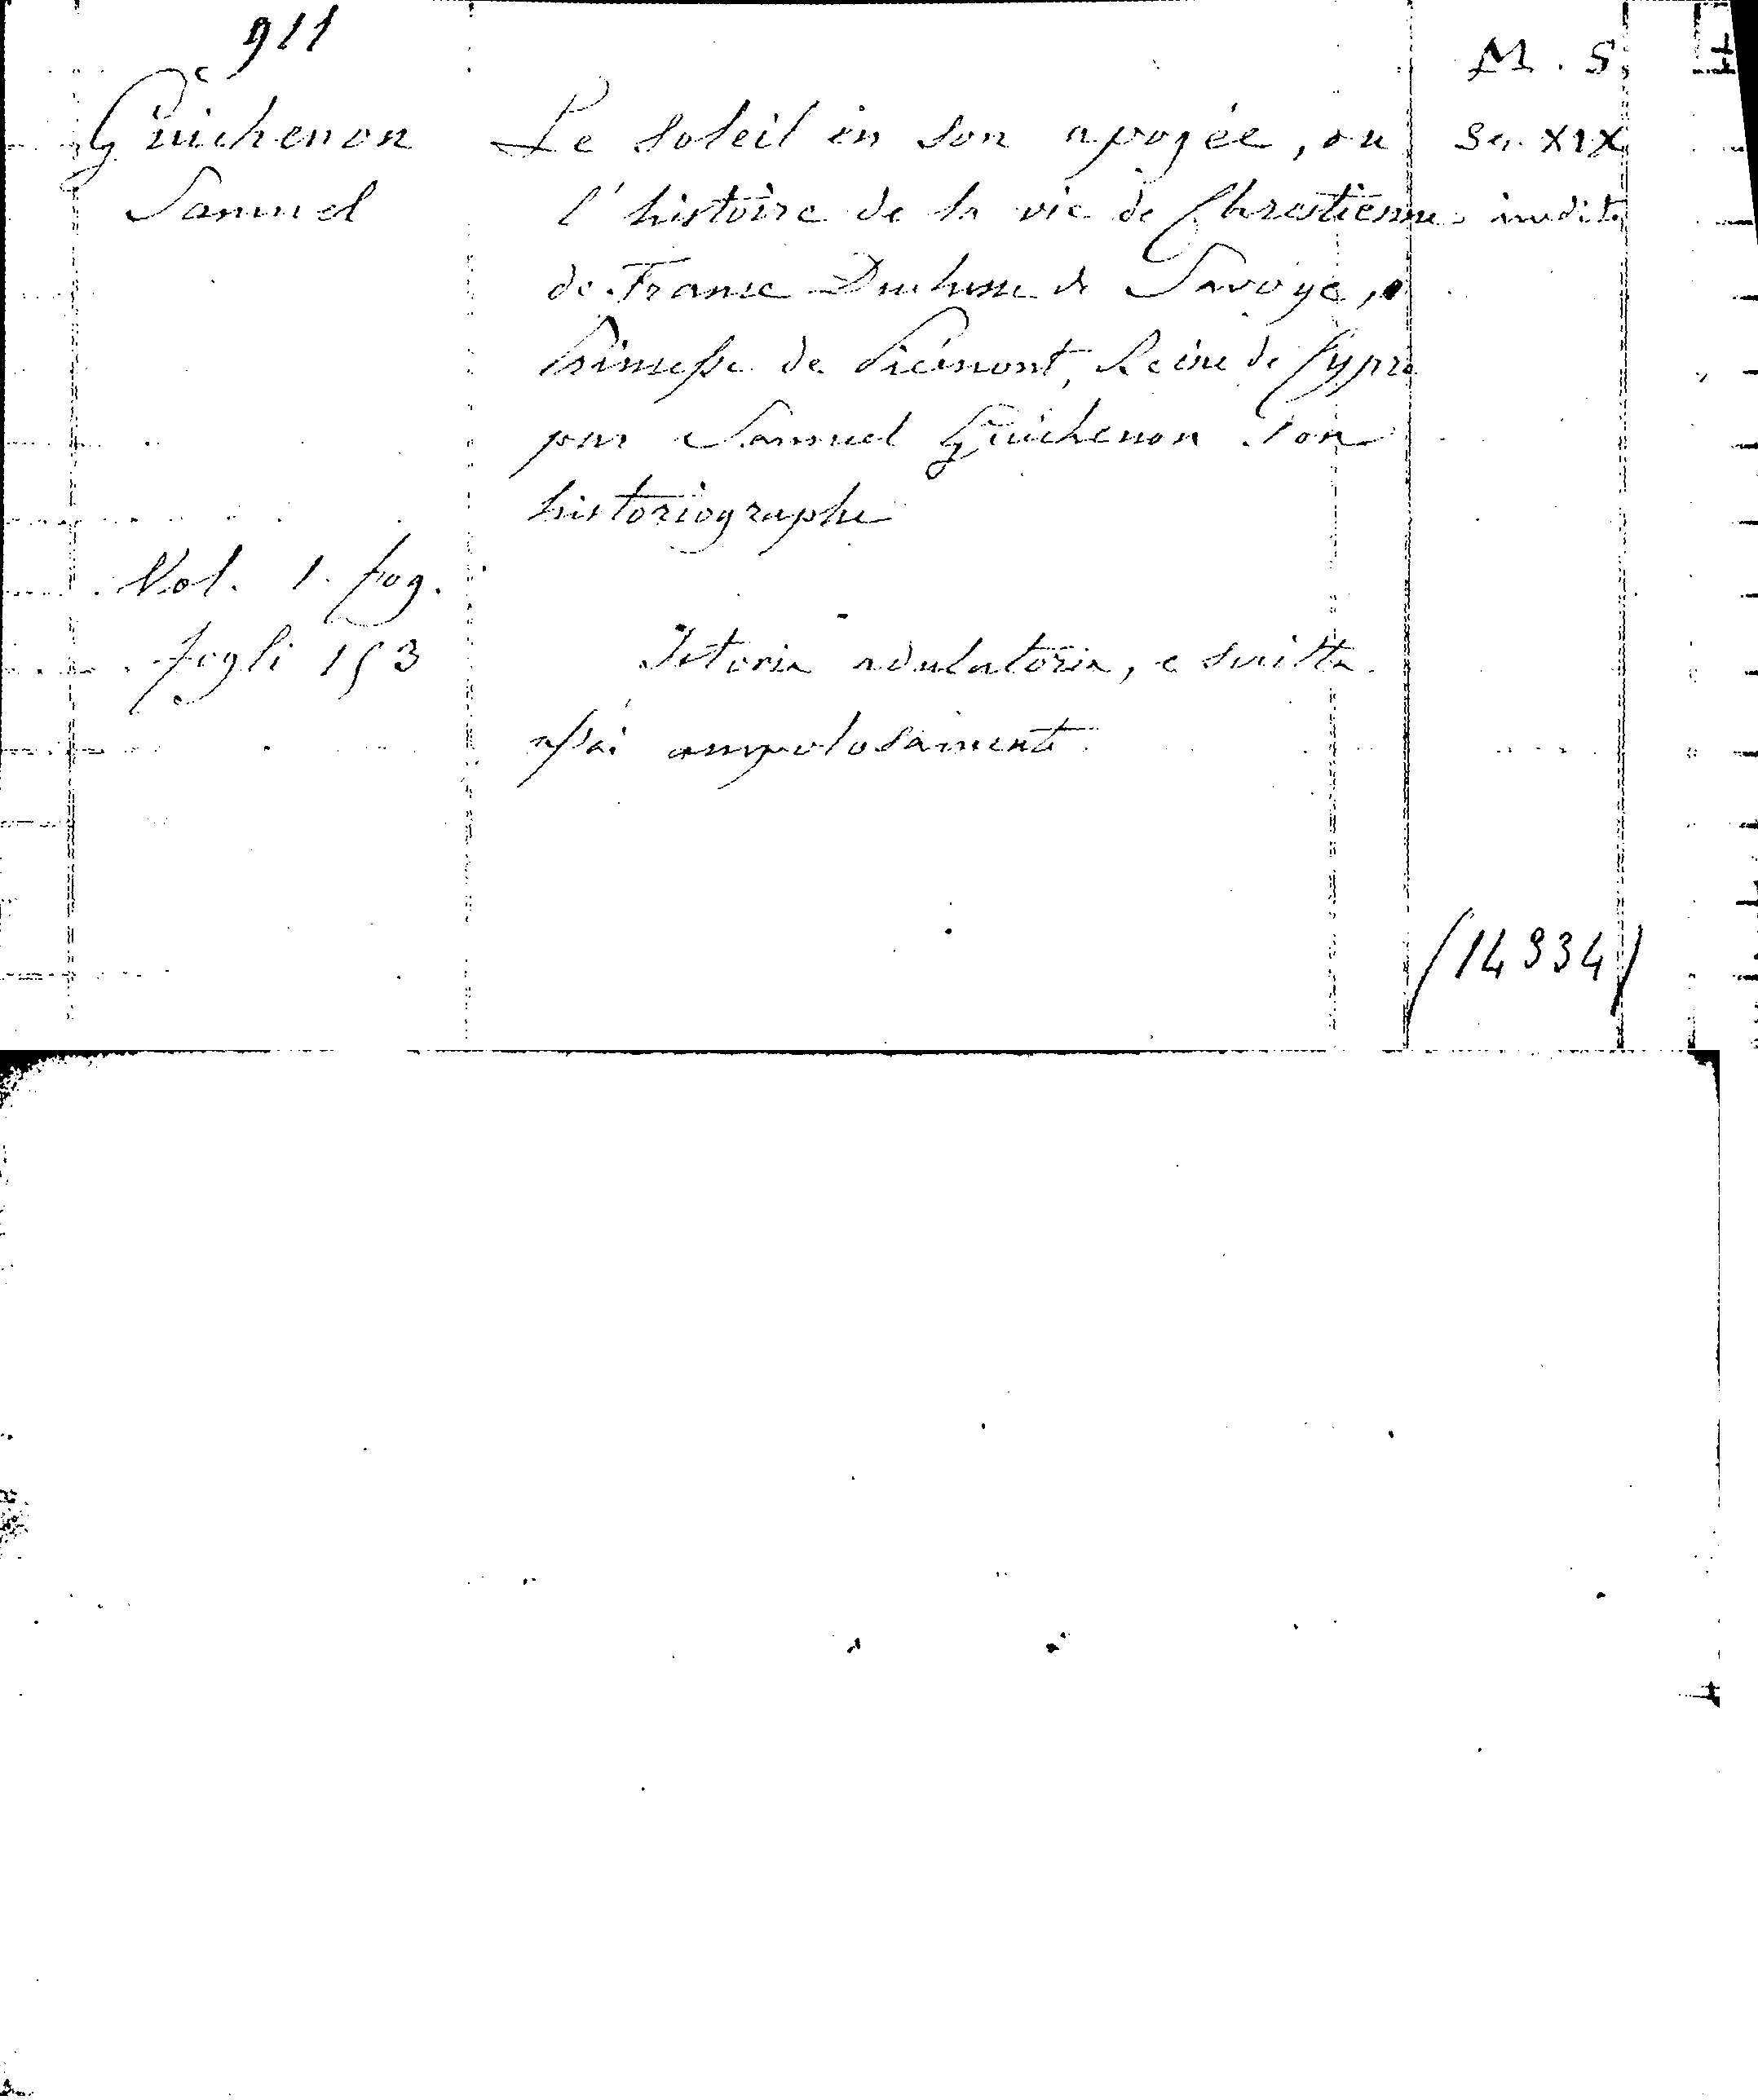 911
M. S.
Guichenon
Samuel
Le soleil en son apogée, ou
l'histoire de la vie de Chrestienne
de France Duchesse de Savoye,
Princesse de Piémont, Reine de Cypre
par Samuel Guichenon son
historiographe
Sec. XIX
inedito
Vol. 1. fog.
fogli 153
Istoria adulatoria, e scritta
assai ampolosamente.
(14934)